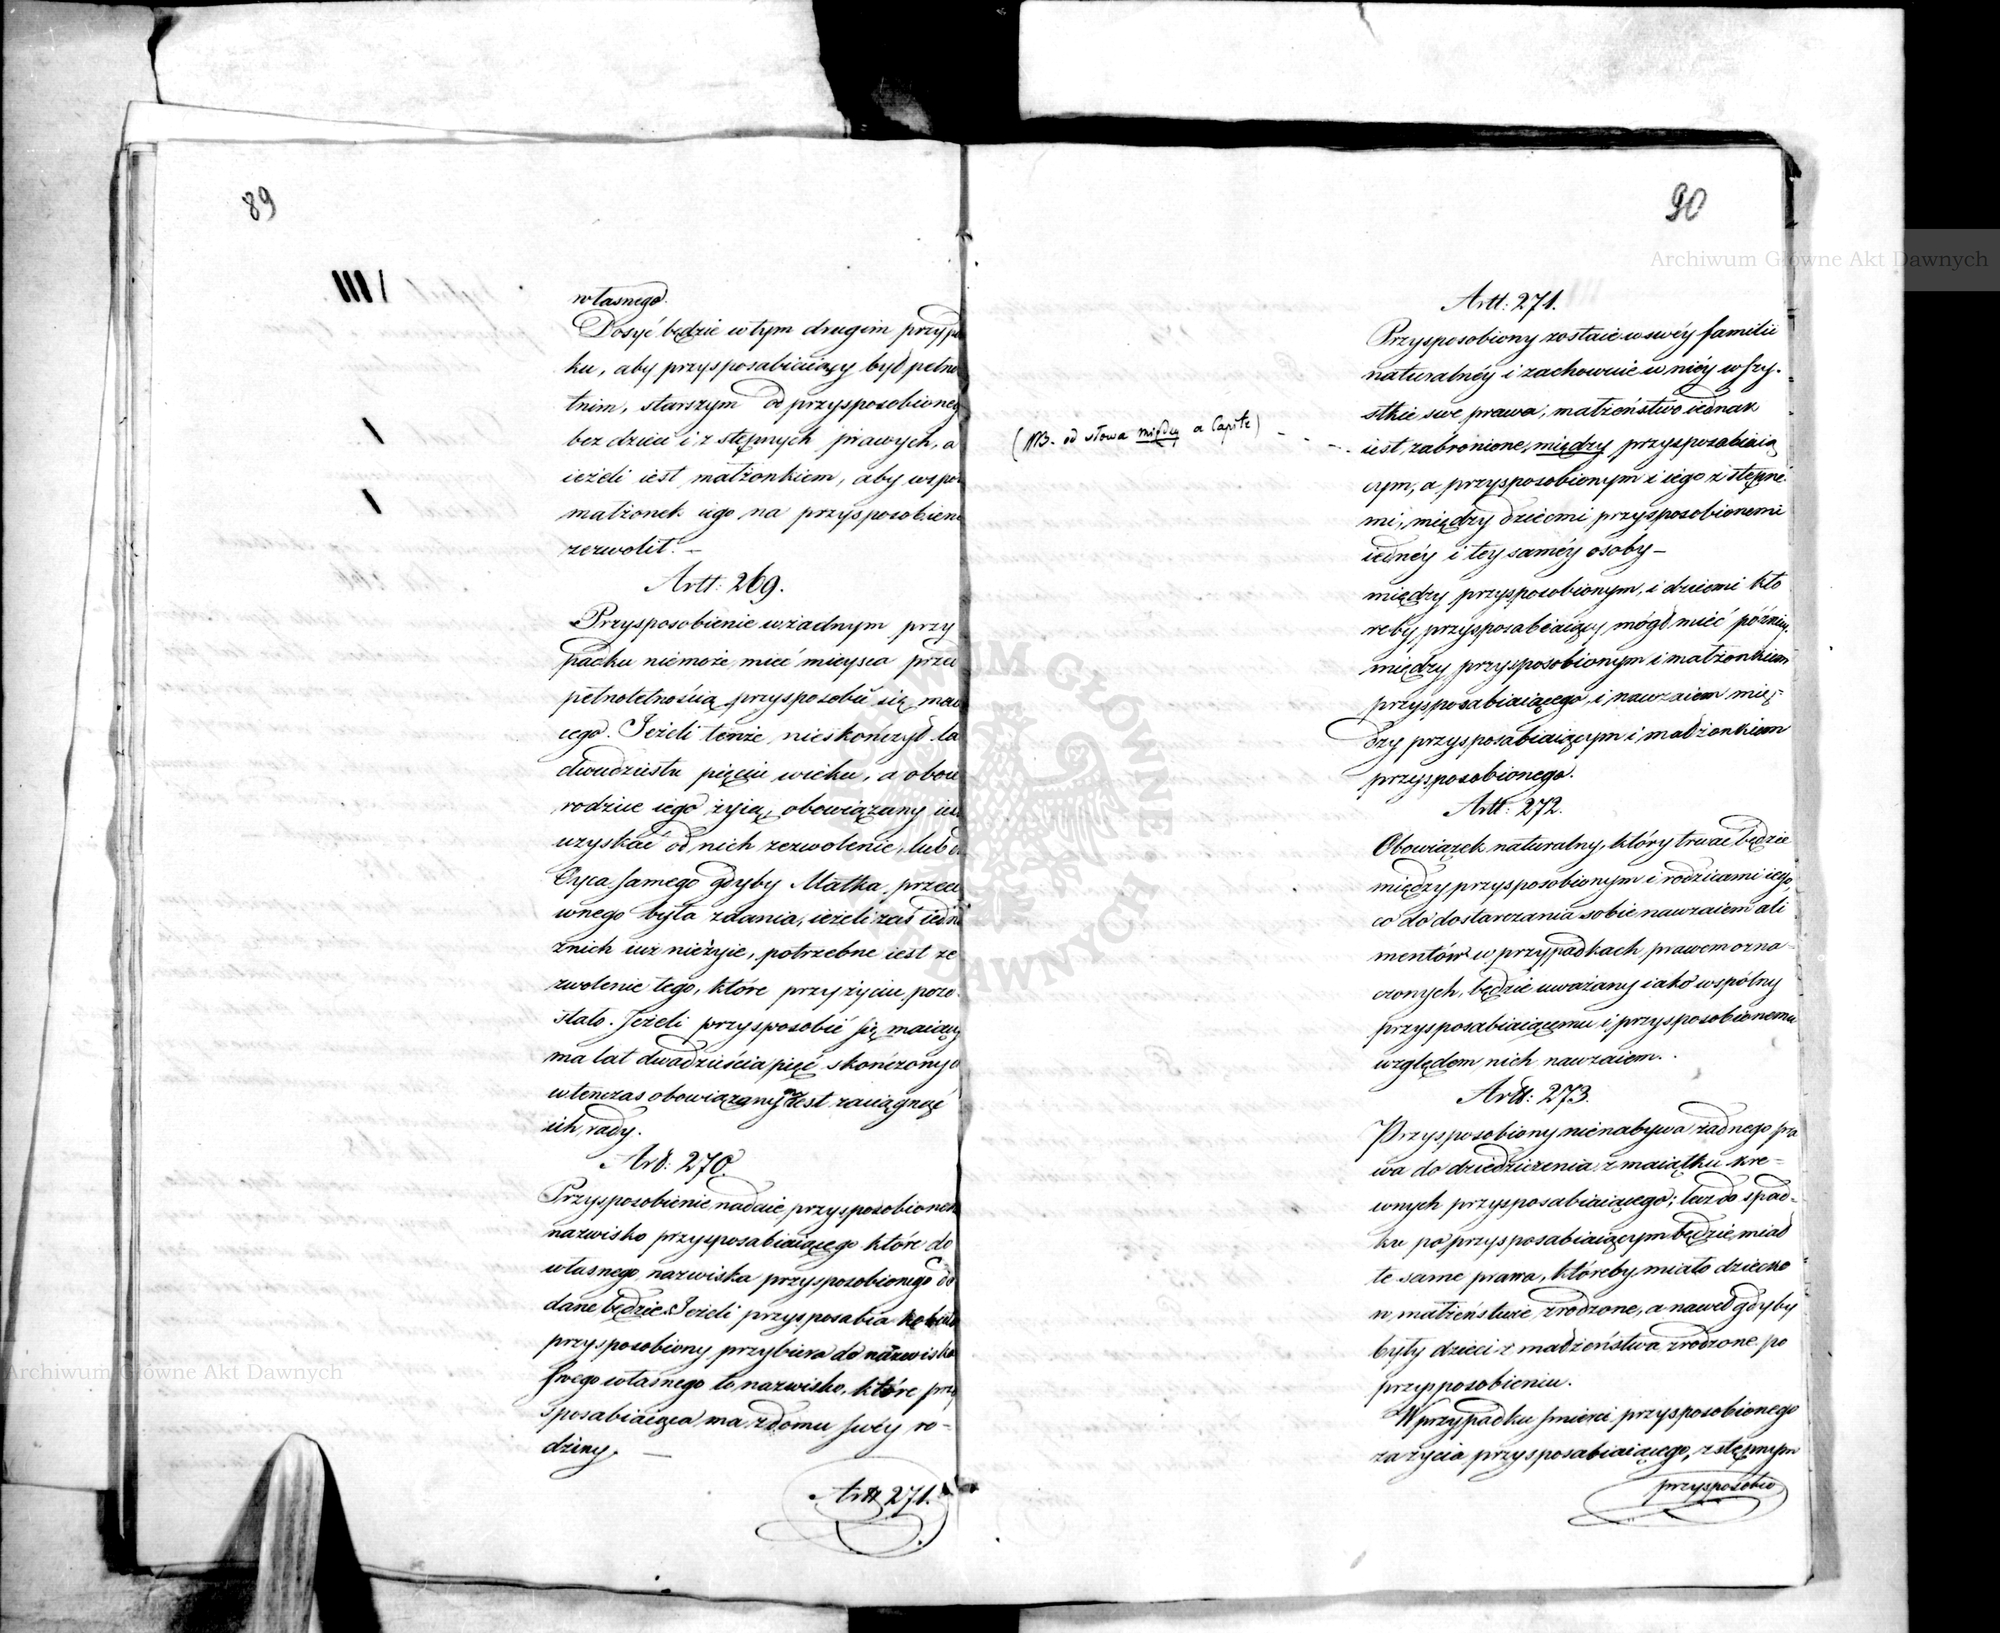 89
III/
własnego.
Dosyć będzie w tym drugim przypa
ku, aby przysposabiaiący był pełno
tnim, starszym od przysposobioneg
bez dzieci i zstępnych prawych, a
ieżeli iest małżonkiem, aby wspó
małżonek iego na przysposobieni
zezwolił. —
Artt: 269.
Przysposobienie w żadnym przy
padku niemoże mieć mieysca prze
pełnoletnością przysposobić się maią
cego. Jeżeli tenże nieskończył la
dwudziestu pięciu wieku, a oboie
rodzice iego żyią, obowiązany ies
uzyskać od nich zezwolenie, lub o
Oyca samego gdyby Matka przeci
wnego była zdania, ieżeli zaś iedn
znich iuż nieżyie, potrzebne iest ze
zwolenie tego, które przy życiu pozo
stało. Jeżeli przysposobić się maiący
ma lat dwadzieścia pięć skończony
wtenczas obowiązany iest zaciągnąć
ich rady.
Art: 270.
Przysposobienie nadaie przysposobionem
nazwisko przysposabiaiącego które do
własnego nazwiska przysposobionego do
dane będzie. Jeżeli przysposabia kobieta
przysposobiony przybiera do nazwiska
swego własnego to nazwisko, które przy
sposabiaiąca ma z domu swéy ro-
dziny. —
Artt 271.
90
Artt: 271.
Przysposobiony zostaie w swéy familii
naturalnéy i zachowuie w niéy wszy-
stkie swe prawa, małżeństwo iednak
(NB. od słowa między a Capite) - - - -
iest zabronione, między przysposabiaią
cym, a przysposobionym i iego zstępne
mi, między dziećmi przysposobionemi
iednéy i tey saméy osoby —
między przysposobionym, i dziećmi któ
reby przysposabiaiący mógł mieć późniéy.
między przysposobionym i małżonkiem
przysposabiaiącego, i nawzaiem mię-
dzy przysposabiaiącym i małżonkiem
przysposobionego.
Artt: 272.
Obowiązek naturalny, który trwać będzie
między przysposobionym i rodzicami iego,
co do dostarczania sobie nawzaiem ali
mentów w przypadkach prawem ozna-
czonych, będzie uważany iako wspólny
przysposabiaiącemu i przysposobionemu
względem nich nawzaiem.
Artt: 273.
Przysposobiony nienabywa żadnego pra
wa do dziedziczenia z maiątku kre-
wnych przysposabiaiącego; lecz do spad-
ku po przysposabiaiącym będzie miał
te same prawa, któreby miało dziecko
w małżeństwie zrodzone, a nawet gdyby
były dzieci z małżeństwa zrodzone po
przysposobieniu.
W przypadku śmierci przysposobionego
za życia przysposabiaiącego, zstępnym
przysposobio
Archiwum Główne Akt Dawnych
Archiwum Główne Akt Dawnych